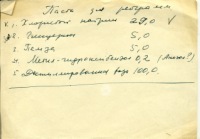 Паста для реставрац
х 1. Хлористый натрий 28,0 V
х 2. Глицерин 5,0
3. Пемза 5,0
4. Метил-гидроксибензоат 0,2
5. Дистиллированная вода 100,0